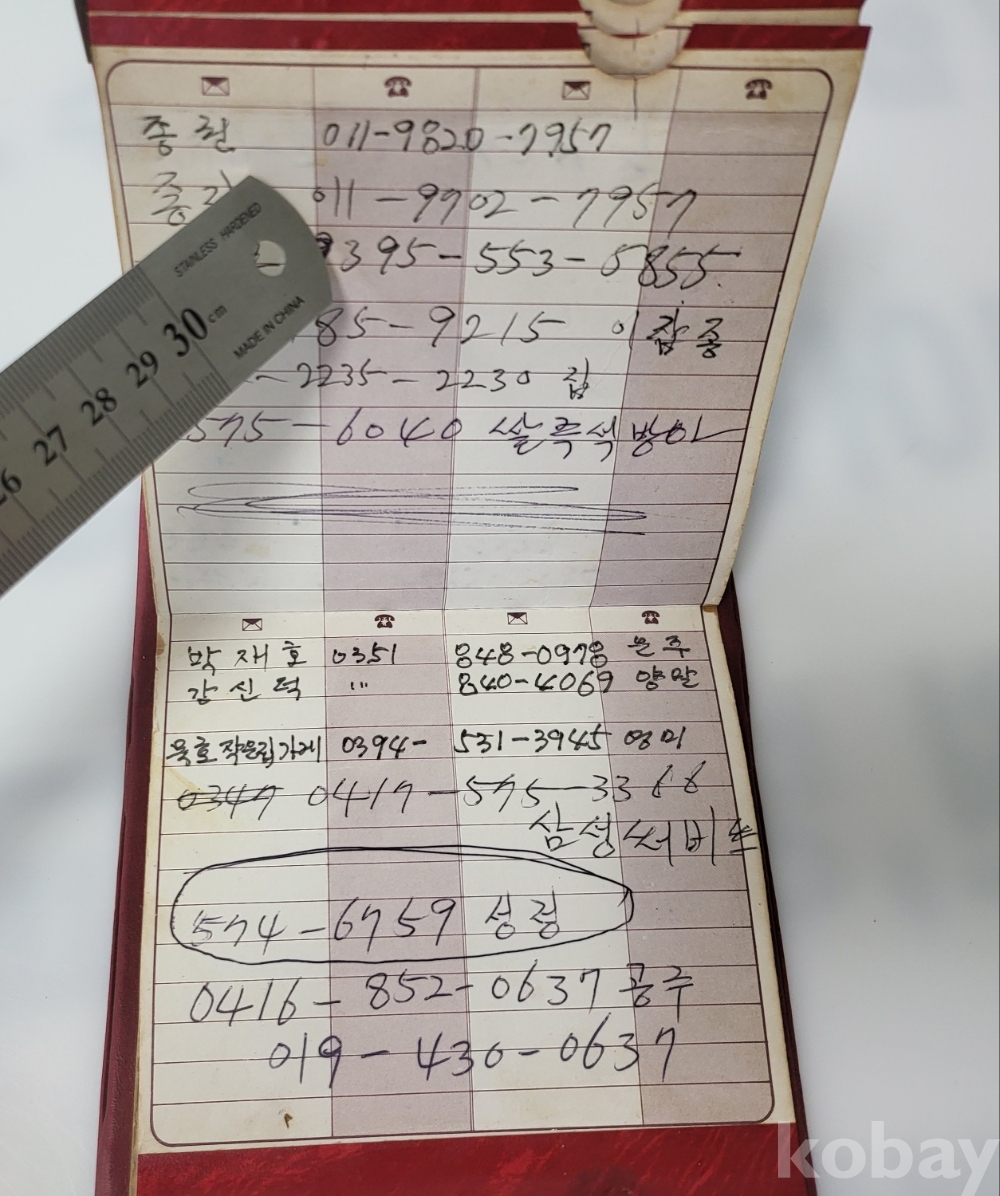 종원 011-9820-7957
종 011-9702-7957
395-553-5855
85-9215 이잠종
-2235-2230 집
575-6040 쌀죽석방아
박재호 0351 848-0978 은주
강신덕 ''' 840-4069 양말
욱호작은집가게 0394- 531-3945 영미
0347 0417-575-3366
삼성써비스
574-6759 성경
0416-852-0637 공주
019-430-0637
STAINLESS HARDENED
MADE IN CHINA
27 28 29 30 cm
kobay